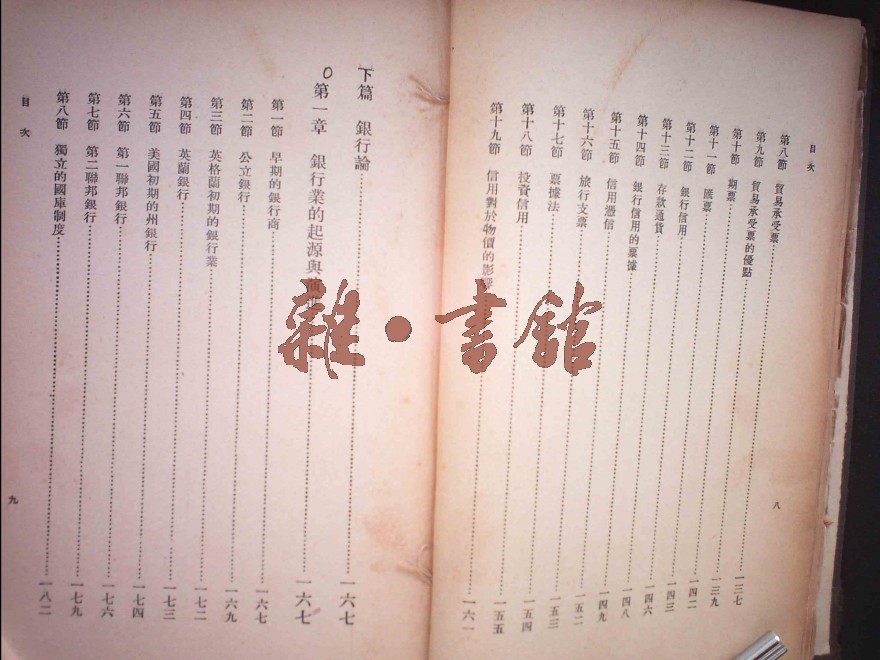 目次
第八節 貿易承受票……一三七
第九節 貿易承受票的優點……一三九
第十節 期票……一四二
第十一節 匯票……一四三
第十二節 銀行信用……一四六
第十三節 存款通貨……一四八
第十四節 銀行信用的票據……一四九
第十五節 信用憑信……一五二
第十六節 旅行支票……一五三
第十七節 票據法……一五四
第十八節 投資信用……一五五
第十九節 信用對於物價的影響……一六一
八
下篇 銀行論……一六七
第一章 銀行業的起源與演……一六七
第一節 早期的銀行商……一六七
第二節 公立銀行……一六九
第三節 英格蘭初期的銀行業……一七二
第四節 英蘭銀行……一七三
第五節 美國初期的州銀行……一七四
第六節 第一聯邦銀行……一七六
第七節 第二聯邦銀行……一七九
第八節 獨立的國庫制度……一八二
目次
九
雜·書館